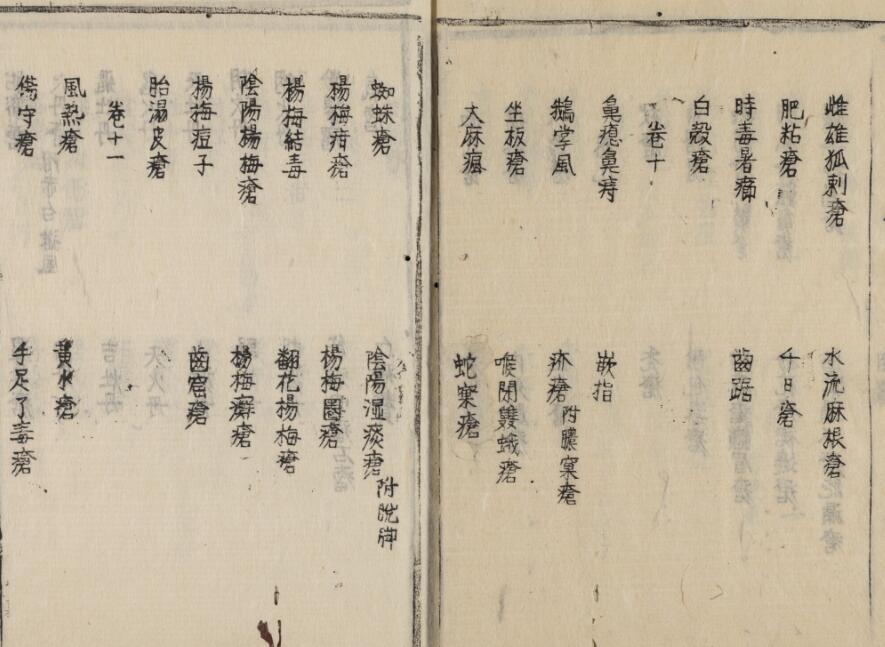 雌雄狐刺瘡 水流麻根瘡
肥粘瘡 千日瘡
時毒暑癤 齒踞
白殼瘡
卷十
鼻瘜鼻痔 嵌指
鵝掌風 疥瘡 附膿窠瘡
坐板瘡 喉閉雙蛾瘡
大麻瘋 蛇窠瘡
蜘蛛瘡 陰陽湿痰瘡 附脫脚
楊梅疳瘡 楊梅圈瘡
楊梅結毒 翻花楊梅瘡
陰陽楊梅瘡 楊梅癬瘡
楊梅痘子 齒窟瘡
胎溻皮瘡
卷十一
風热瘡 黄水瘡
傷守瘡 手足了毒瘡